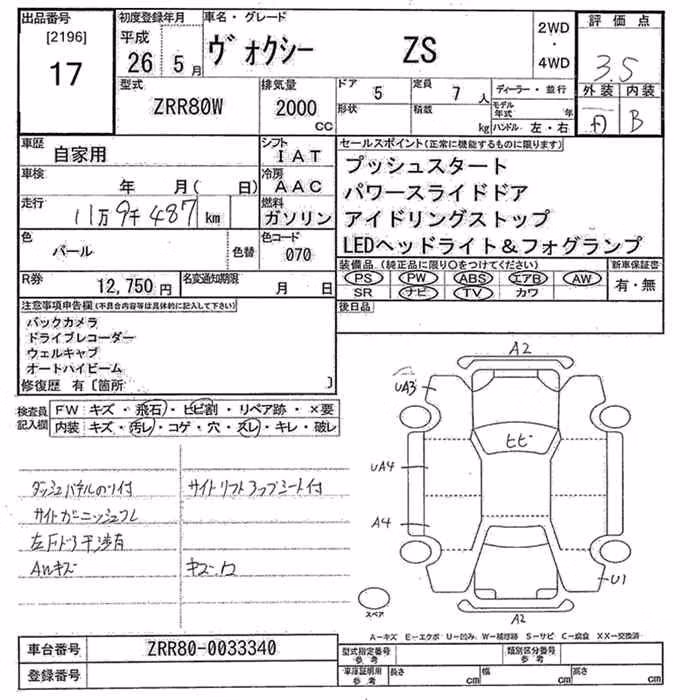 出品番号
[2196]
17
初度登録年月
平成
26 5月
車名・グレード
ヴォクシー ZS
2WD
・
4WD
評価点
3.5
外装 内装
B
型式
ZRR80W
排気量
2000
CC
ドア 5
定員 7人
形状
積載
kg
ディーラー・並行
モデル年式 年
ハンドル 左・右
車歴
自家用
シフト
IAT
車検
年 月( 日)
冷房
AAC
走行
11万9千487 km
燃料
ガソリン
色
パール
色替
色コード
070
R券
12,750円
名変通知期限
月 日
セールスポイント(正常に機能するものに限ります)
プッシュスタート
パワースライドドア
アイドリングストップ
LEDヘッドライト&フォグランプ
装備品(純正品に限り○をつけてください)
PS PW ABS エアB AW
SR ナビ TV カワ
新車保証書
有・無
後日品
注意事項申告欄(不具合内容等は具体的に記入して下さい)
バックカメラ
ドライブレコーダー
ウェルキャブ
オートハイビーム
修復歴 有〔箇所 〕
検査員記入欄
FW キズ・飛石・ヒビ割・リペア跡・×要
内装 キズ・汚レ・コゲ・穴・スレ・キレ・破レ
ダッシュパネルのり付
サイドリフトアップシート付
左Fドア干渉有
AWキズ
A2
UA3
ヒビ
UA4
A4
U1
A2
スペア
A―キズ E―エクボ U―凹み W―補修跡 S―サビ C―腐食 XX―交換済
車台番号
ZRR80-0033340
登録番号
型式指定番号
参考
類別区分番号
参考
車庫証明用
参考
長さ cm 幅 cm 高さ cm